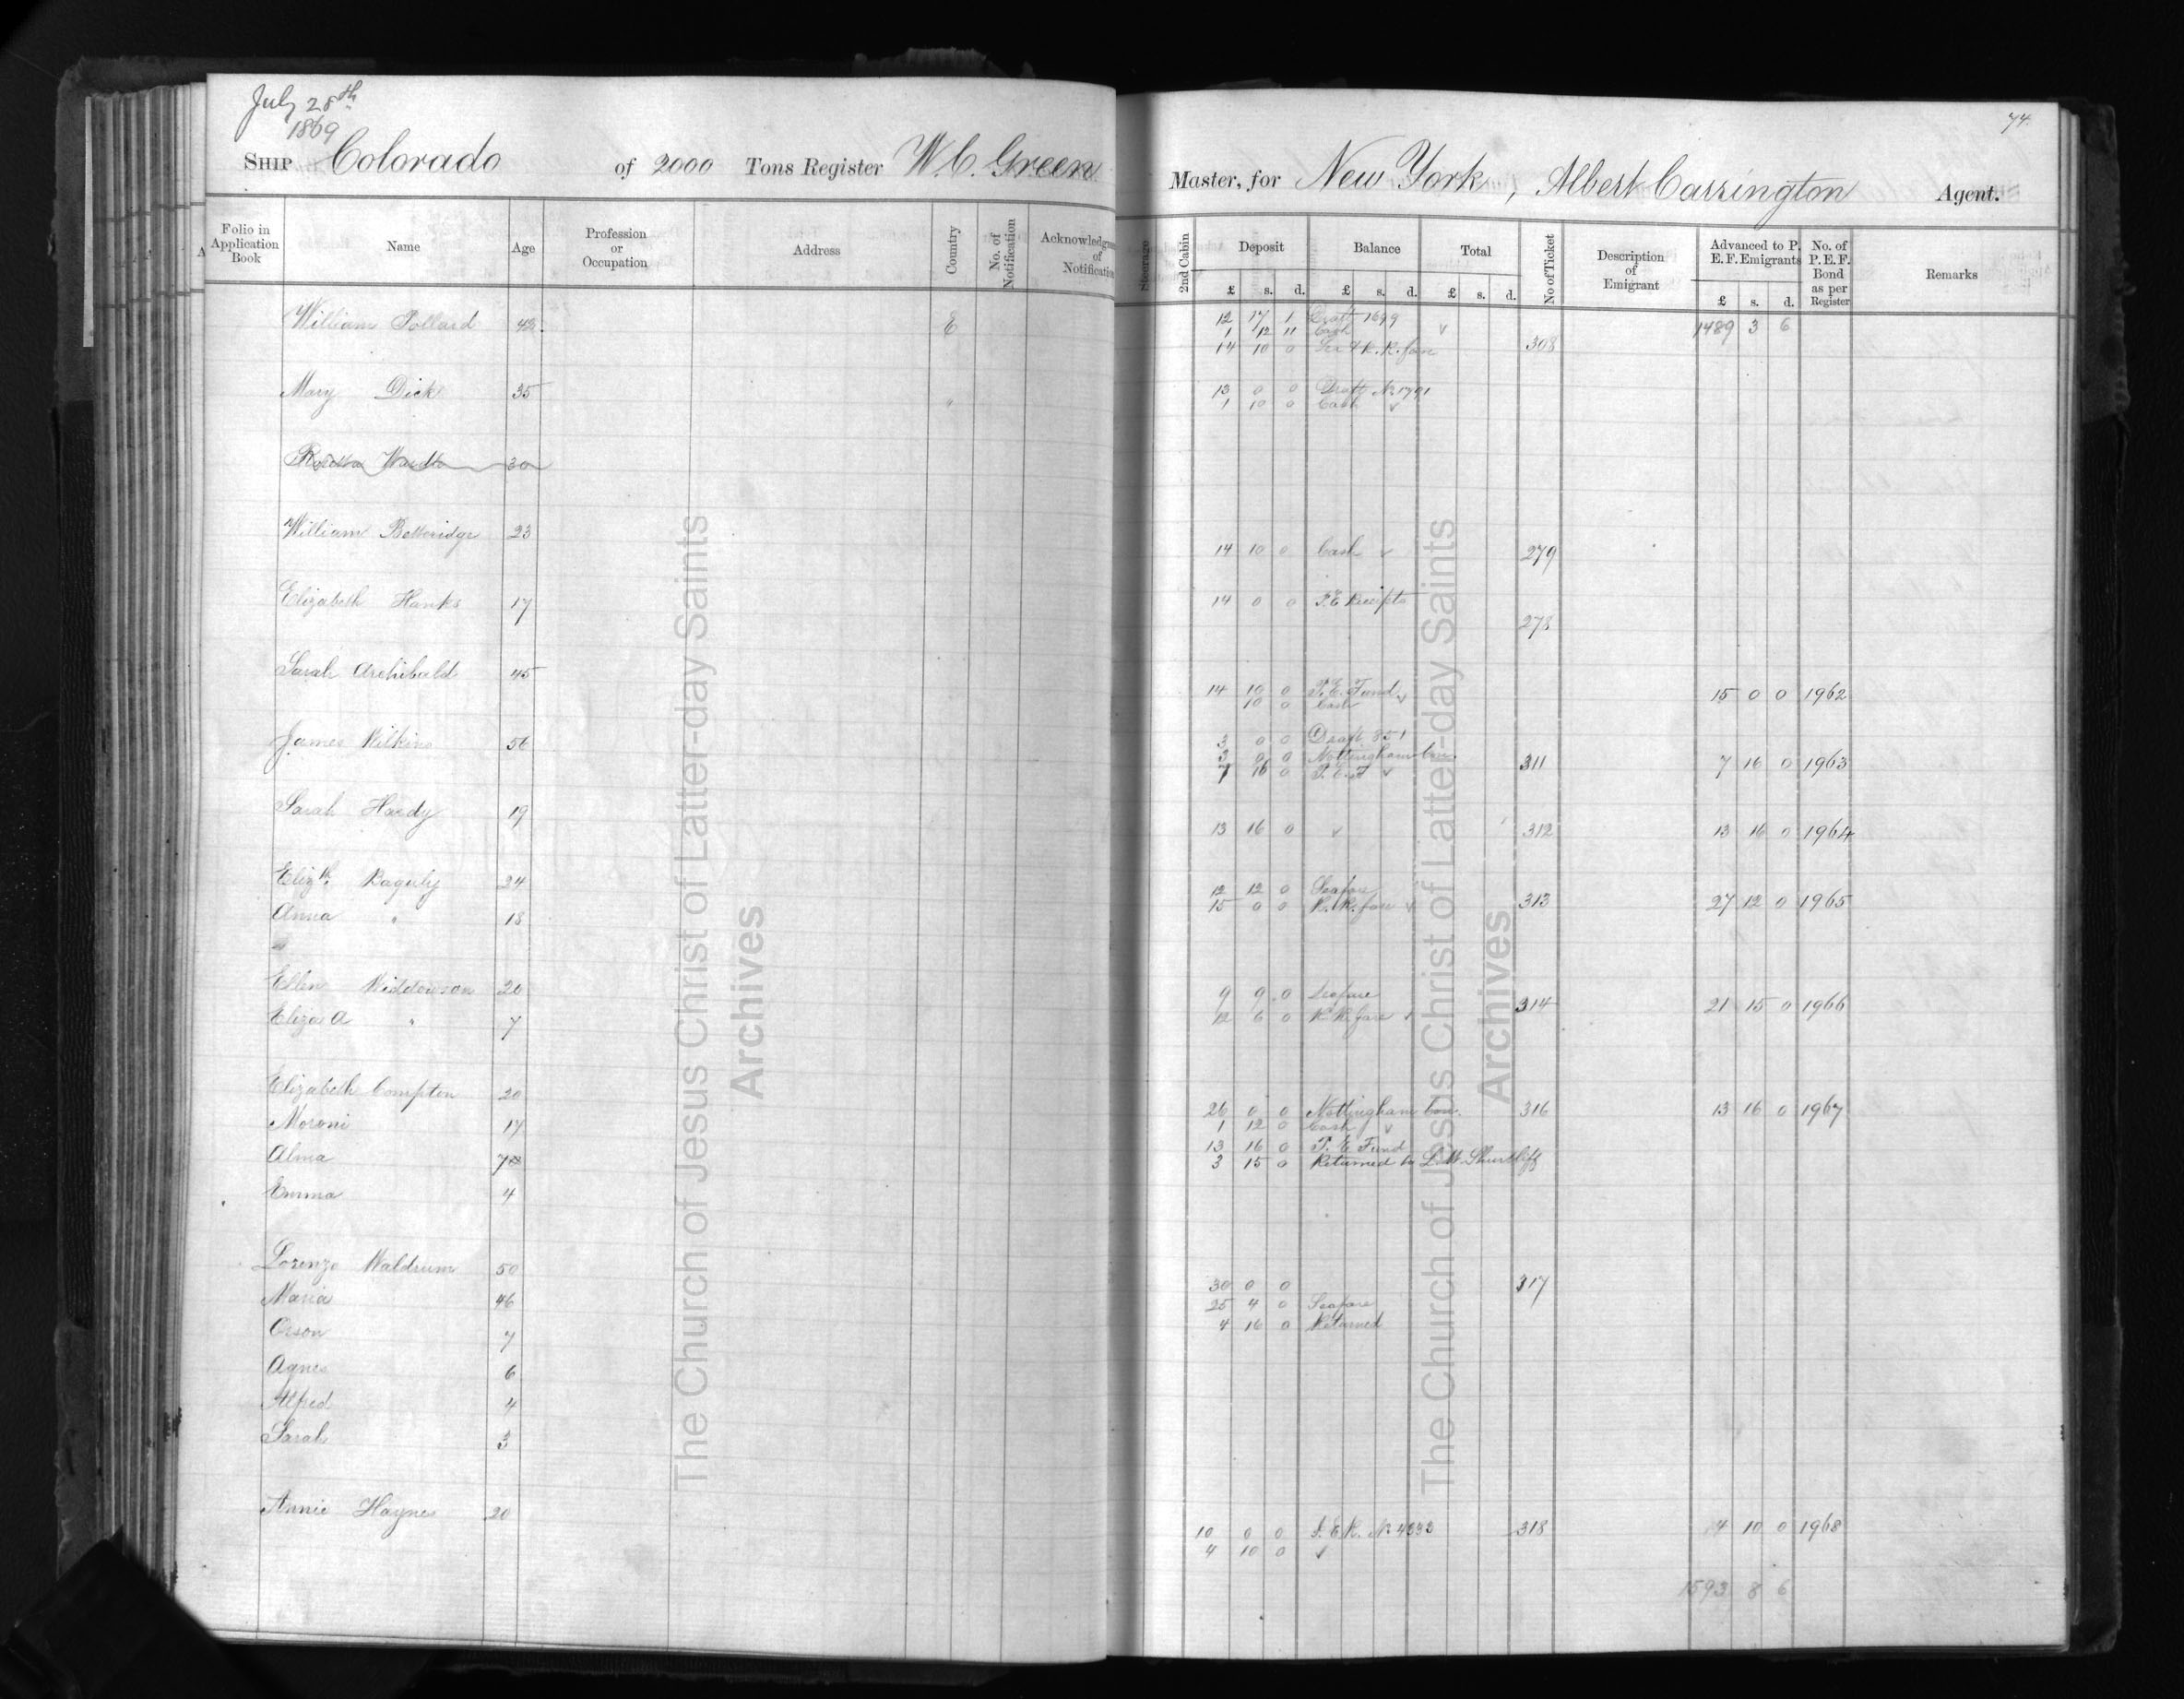 July 28th
1869
74.
SHIP Colorado of 2000 Tons Register W. C. Green Master, for New York, Albert Carrington Agent.
Folio in Application Book
Name
Age
Profession or Occupation
Address
Country
No. of Notification
Acknowledgme of Notification
Steerage
2nd Cabin
Deposit £ s. d.
Balance £ s. d.
Total £ s. d.
No of Ticket
Description of Emigrant
Advanced to P. E. F. Emigrants £ s. d.
No. of P. E. F. Bond as per Register
Remarks
William Pollard E 12 17 1 Draft 1699 1489 3 6
1 12 11 Cash
14 10 0 Sea & R. R. fare 308
Mary Dick 35 " 13 0 0 Draft No 1791
1 10 0 Cash
30
William Betteridge 23
14 10 0 Cash 279
Elizabeth Hanks 17 14 0 0 P.E Receipts
278
Sarah Archibald 45
14 10 0 P. E. Fund 15 0 0 1962
10 0 Cash
James Wilkins 56 3 0 0 Draft 851
3 0 0 Nottingham Con. 311 7 16 0 1963
7 16 0 P. E. F
Sarah Hardy 19
13 16 0 312 13 16 0 1964
Elizth. Baguly 24 12 12 0 Seafare
Anna " 18 15 0 0 R. R. fare 313 27 12 0 1965
Ellen Widdowson 20 9 9 0 Seafare 314 21 15 0 1966
Eliza A " 7 12 6 0 R. R. fare
Elizabeth Compton 20
26 0 0 Nottingham Con. 316 13 16 0 1967
Moroni 17 1 12 0 Cash
13 16 0 P. E Fund
Alma 7 3 15 0 Returned to L. W. Shurtliff
Emma 4
Lorenzo Waldrum 50
30 0 0 317
Maria 46 25 4 0 Seafare
Orson 7 4 16 0 Returned
Agnes 6
Alfred 4
Sarah 3
Annie Haynes 20
10 0 0 P. E R. No 4333 318 4 10 0 1968
4 10 0
1593 8 6
The Church of Jesus Christ of Latter-day Saints
Archives
The Church of Jesus Christ of Latter-day Saints
Archives